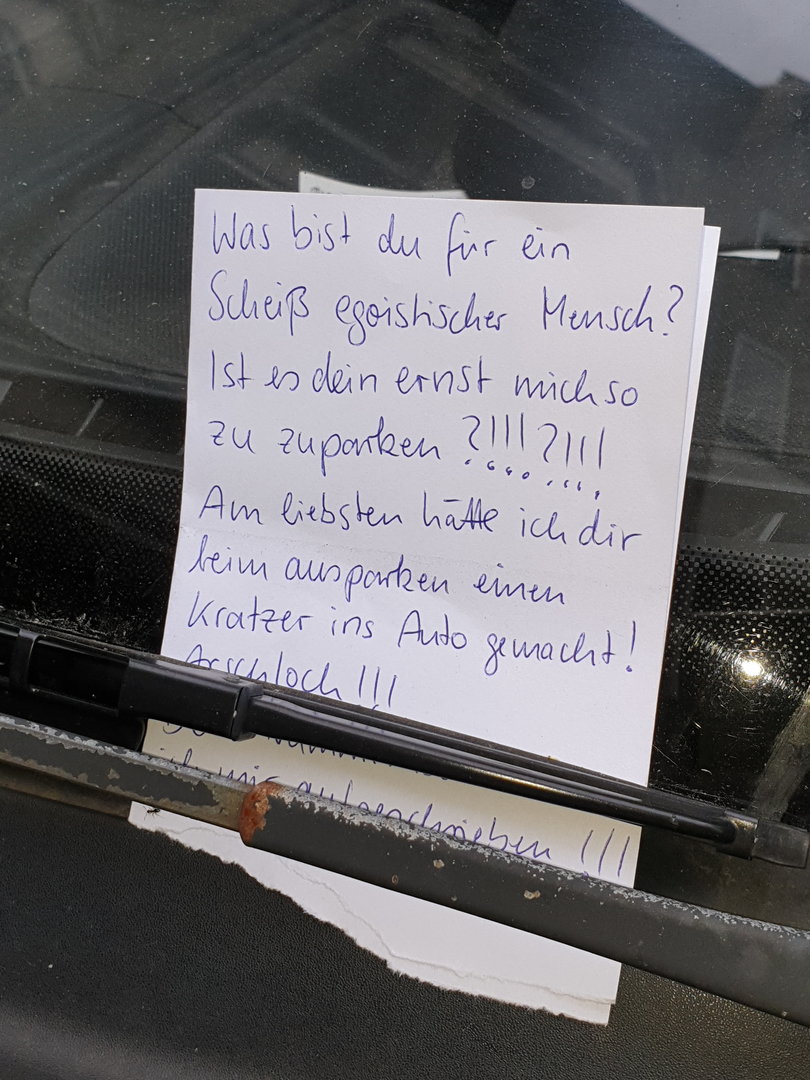 Was bist du für ein
Scheiß egoistischer Mensch?
Ist es dein ernst mich so
zu zuparken ?!!!?!!!
Am liebsten hätte ich dir
beim ausparken einen
Kratzer ins Auto gemacht!
Arschloch!!!
ich mir aufgeschrieben!!!